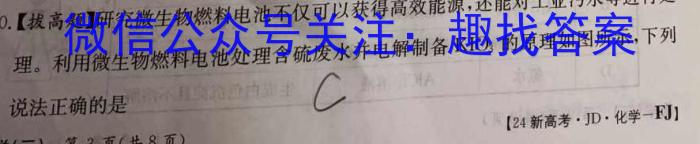 0.【拔高题】研究微生物燃料电池不仅可以获得高效能源，还能对工业污水等
微信公众号关注：趣找答案
理。利用微生物燃料电池处理含硫废水并电解制备 的原理如图所示，下列
说法正确的是
C
【24新高考·JD·化学－FJ】
第2页（共8页）